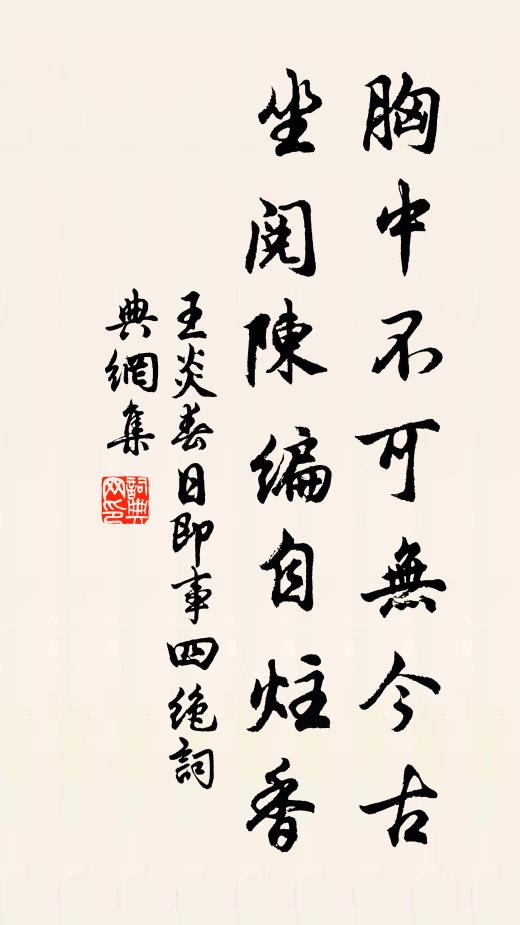 胸中不可無今古
坐閱陳編自炷香
王炎春日即事四絶詞
典網集
詞典網印